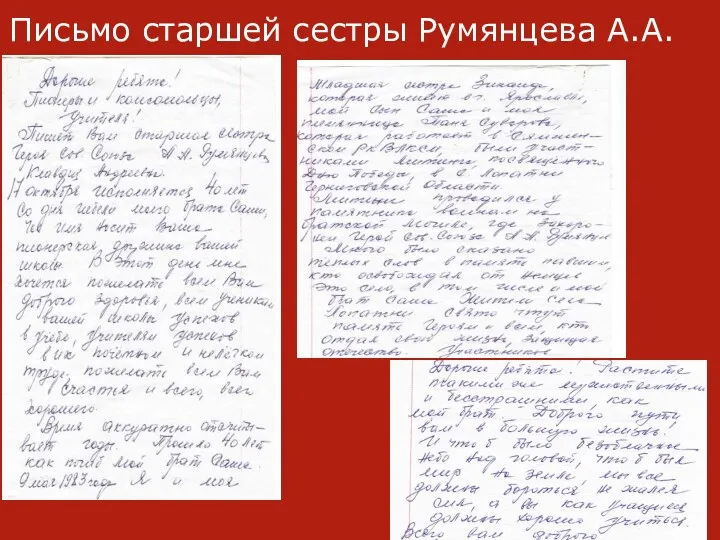 Письмо старшей сестры Румянцева А.А.
Дорогие ребята!
Пионеры и комсомольцы,
учителя!
Пишет Вам старшая сестра
Героя Сов. Союза А.А. Румянцева
Клавдия Андреевна.
17 октября исполняется 40 лет
со дня гибели моего брата Саши,
чьё имя носит Ваша
пионерская дружина вашей
школы. В этот день мне
хочется пожелать всем Вам
доброго здоровья, всем ученикам
вашей школы успехов
в учебе, учителям успехов
в их почетном и нелёгком
труде, пожелать всем Вам
счастья и всего, всего
хорошего.
Время аккуратно отсчиты-
вает годы. Прошло 40 лет
как погиб мой брат Саша.
9 мая 1983 года Я и моя
Младшая сестра Зинаида,
которая живёт в г. Ярославле,
мой сын Саша и моя
племянница Таня Суворова,
которая работает в
ском РК ВЛКСМ, были участ-
никами митинга, посвящённого
Дню Победы, в с. Лопатни
Черниговской области.
Митинг проводился у
памятника воинам на
братской могиле, где захоро-
нен Герой Сов. Союза А.А. Румянцев
Много было сказано
теплых слов в память павшим,
кто освобождал от немцев
это село, в том числе и мой
брат Саша. Жители села
Лопатни свято чтут
память Героям и всем, кто
отдал свою жизнь, защищая
отечество. Участников
Дорогие ребята! Растите
такими же мужественными
и бесстрашными, как
мой брат. Доброго пути
вам в большую жизнь!
И чтоб было безоблачное
небо над головой, чтоб был
мир на земле, мы все
должны бороться не жалея
сил, а вы как учащиеся
должны хорошо учиться.
Всего вам доброго